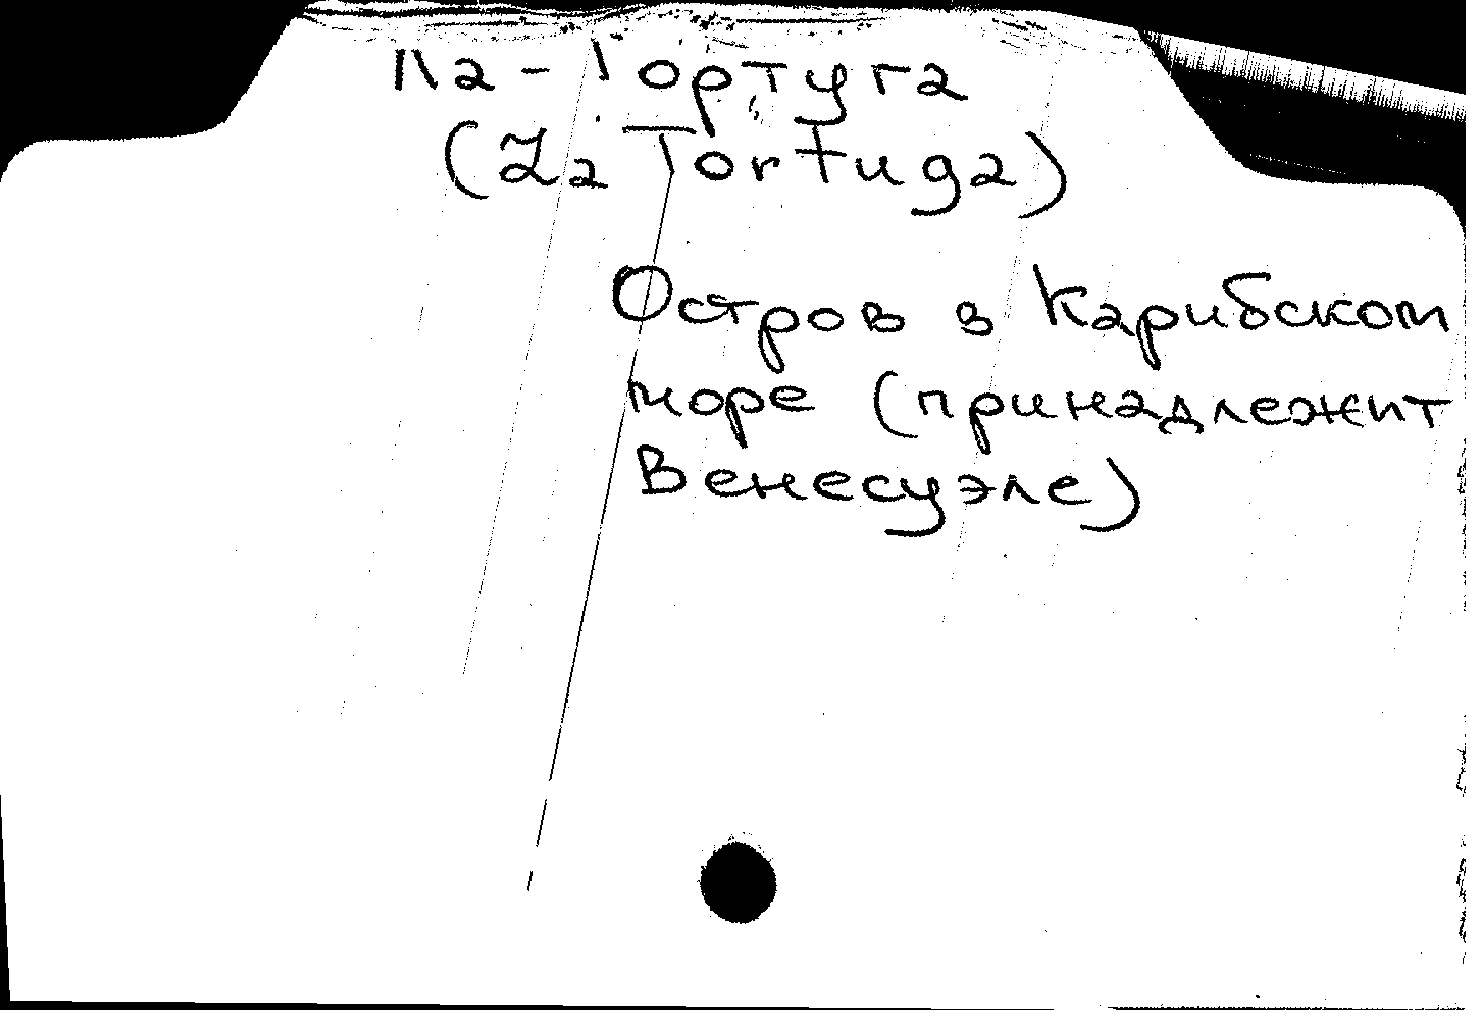 Ла-Тортуга
(La Tortuga)
Остров в Карибском
море (принадлежит
Венесуэле)